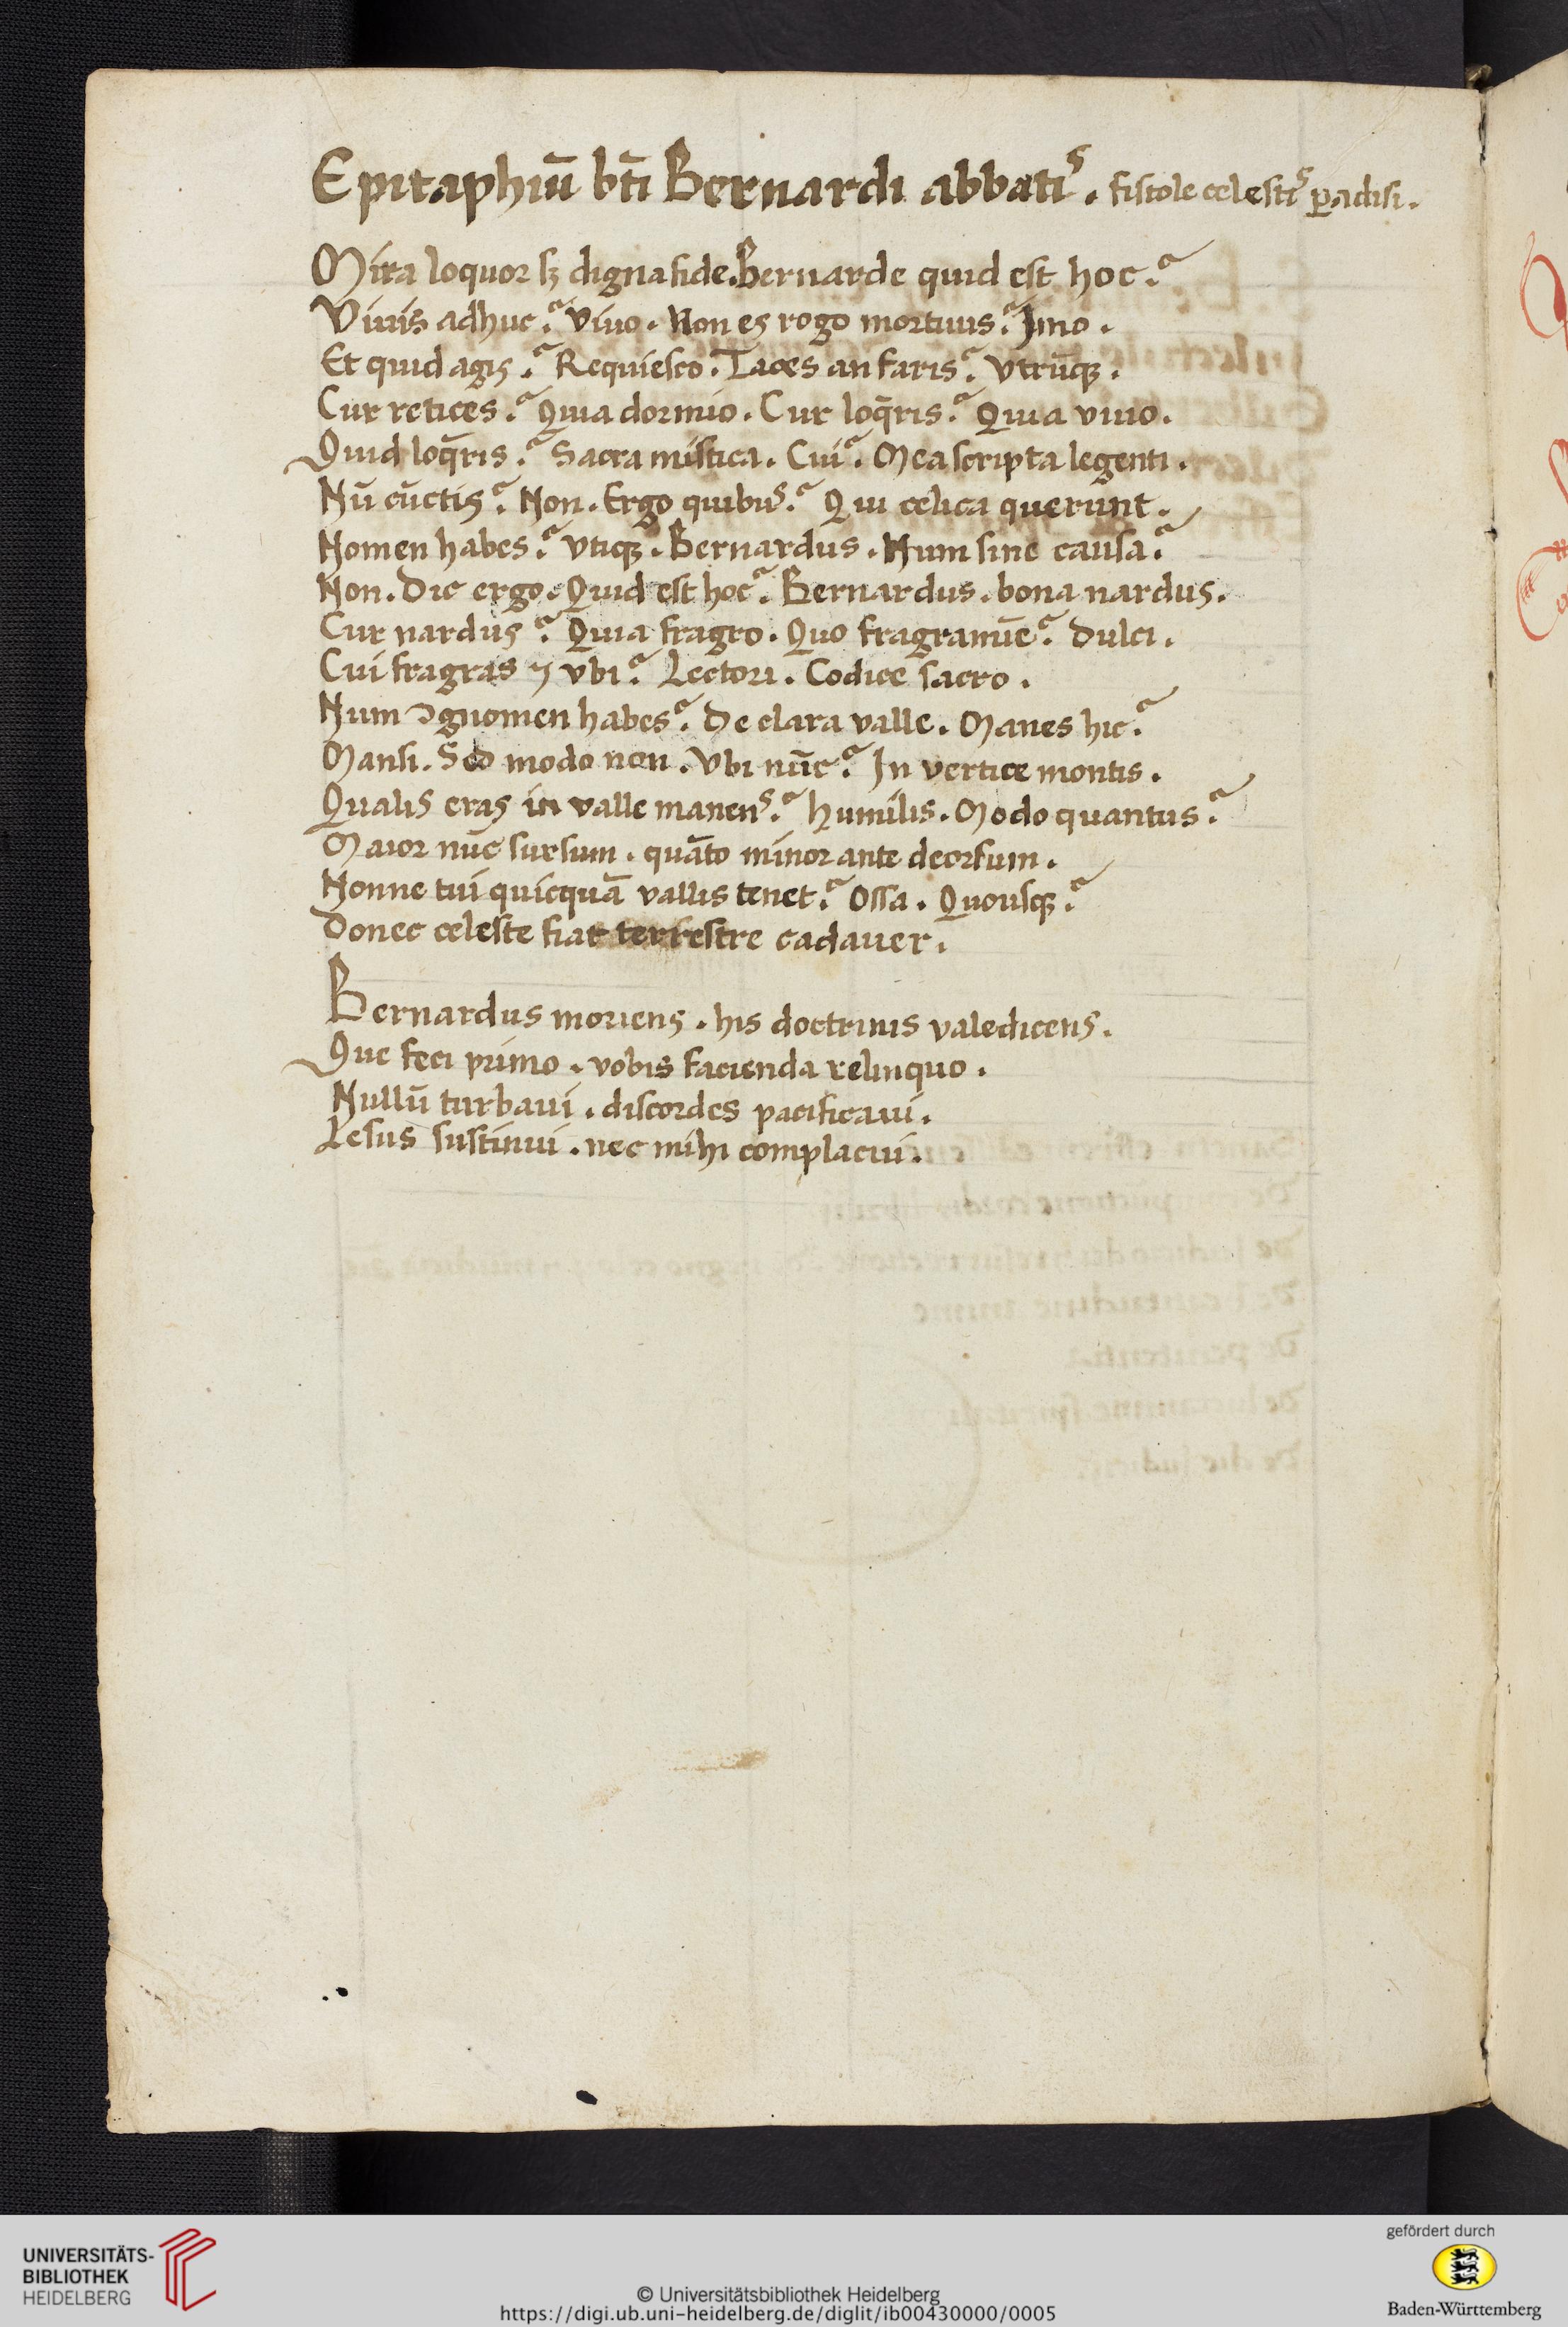 Epitaphiū bt̄i Bernardi abbatis. fistole celestis ꝑadisi.
Mira loquor sꝫ digna fide. Bernarde quid est hoc?
Viuis adhuc? Viuo. Non es rogo mortuus? Jmo.
Et quid agis? Requiesco. Taces an faris? Vtrūqꝫ.
Cur retices? Quia dormio. Cur loq̄ris? Quia viuo.
Quid loq̄ris? Sacra mistica. Cui? Mea scripta legenti.
Nū cūctis? Non. Ergo quibus? Qui celica querunt.
Nomen habes? Vtiqꝫ. Bernardus. Num sine causa?
Non. Dic ergo. Quid est hoc? Bernardus. bona nardus.
Cur nardus? Quia fragro. Quo fragramīe? Dulci.
Cui fragras ⁊ vbi? Lectori. Codice sacro.
Num ꝯgnomen habes? De clara valle. Manes hic?
Mansi. Sed modo non. Vbi nūc? In vertice montis.
Qualis eras in valle manens? Humilis. Modo quantus?
Maior nūc sursum. quāto minor ante deorsum.
Nonne tui quicquā vallis tenet? Ossa. Quousqꝫ?
Donec celeste fiat terrestre cadauer.
Bernardus moriens. his doctrinis valedicens.
Que feci primo. vobis facienda relinquo.
Nullū turbaui. discordes pacificaui.
Lesus sustinui. nec mihi complacui.
UNIVERSITÄTS-
BIBLIOTHEK
HEIDELBERG
© Universitätsbibliothek Heidelberg
https://digi.ub.uni-heidelberg.de/diglit/ib00430000/0005
gefördert durch
Baden-Württemberg